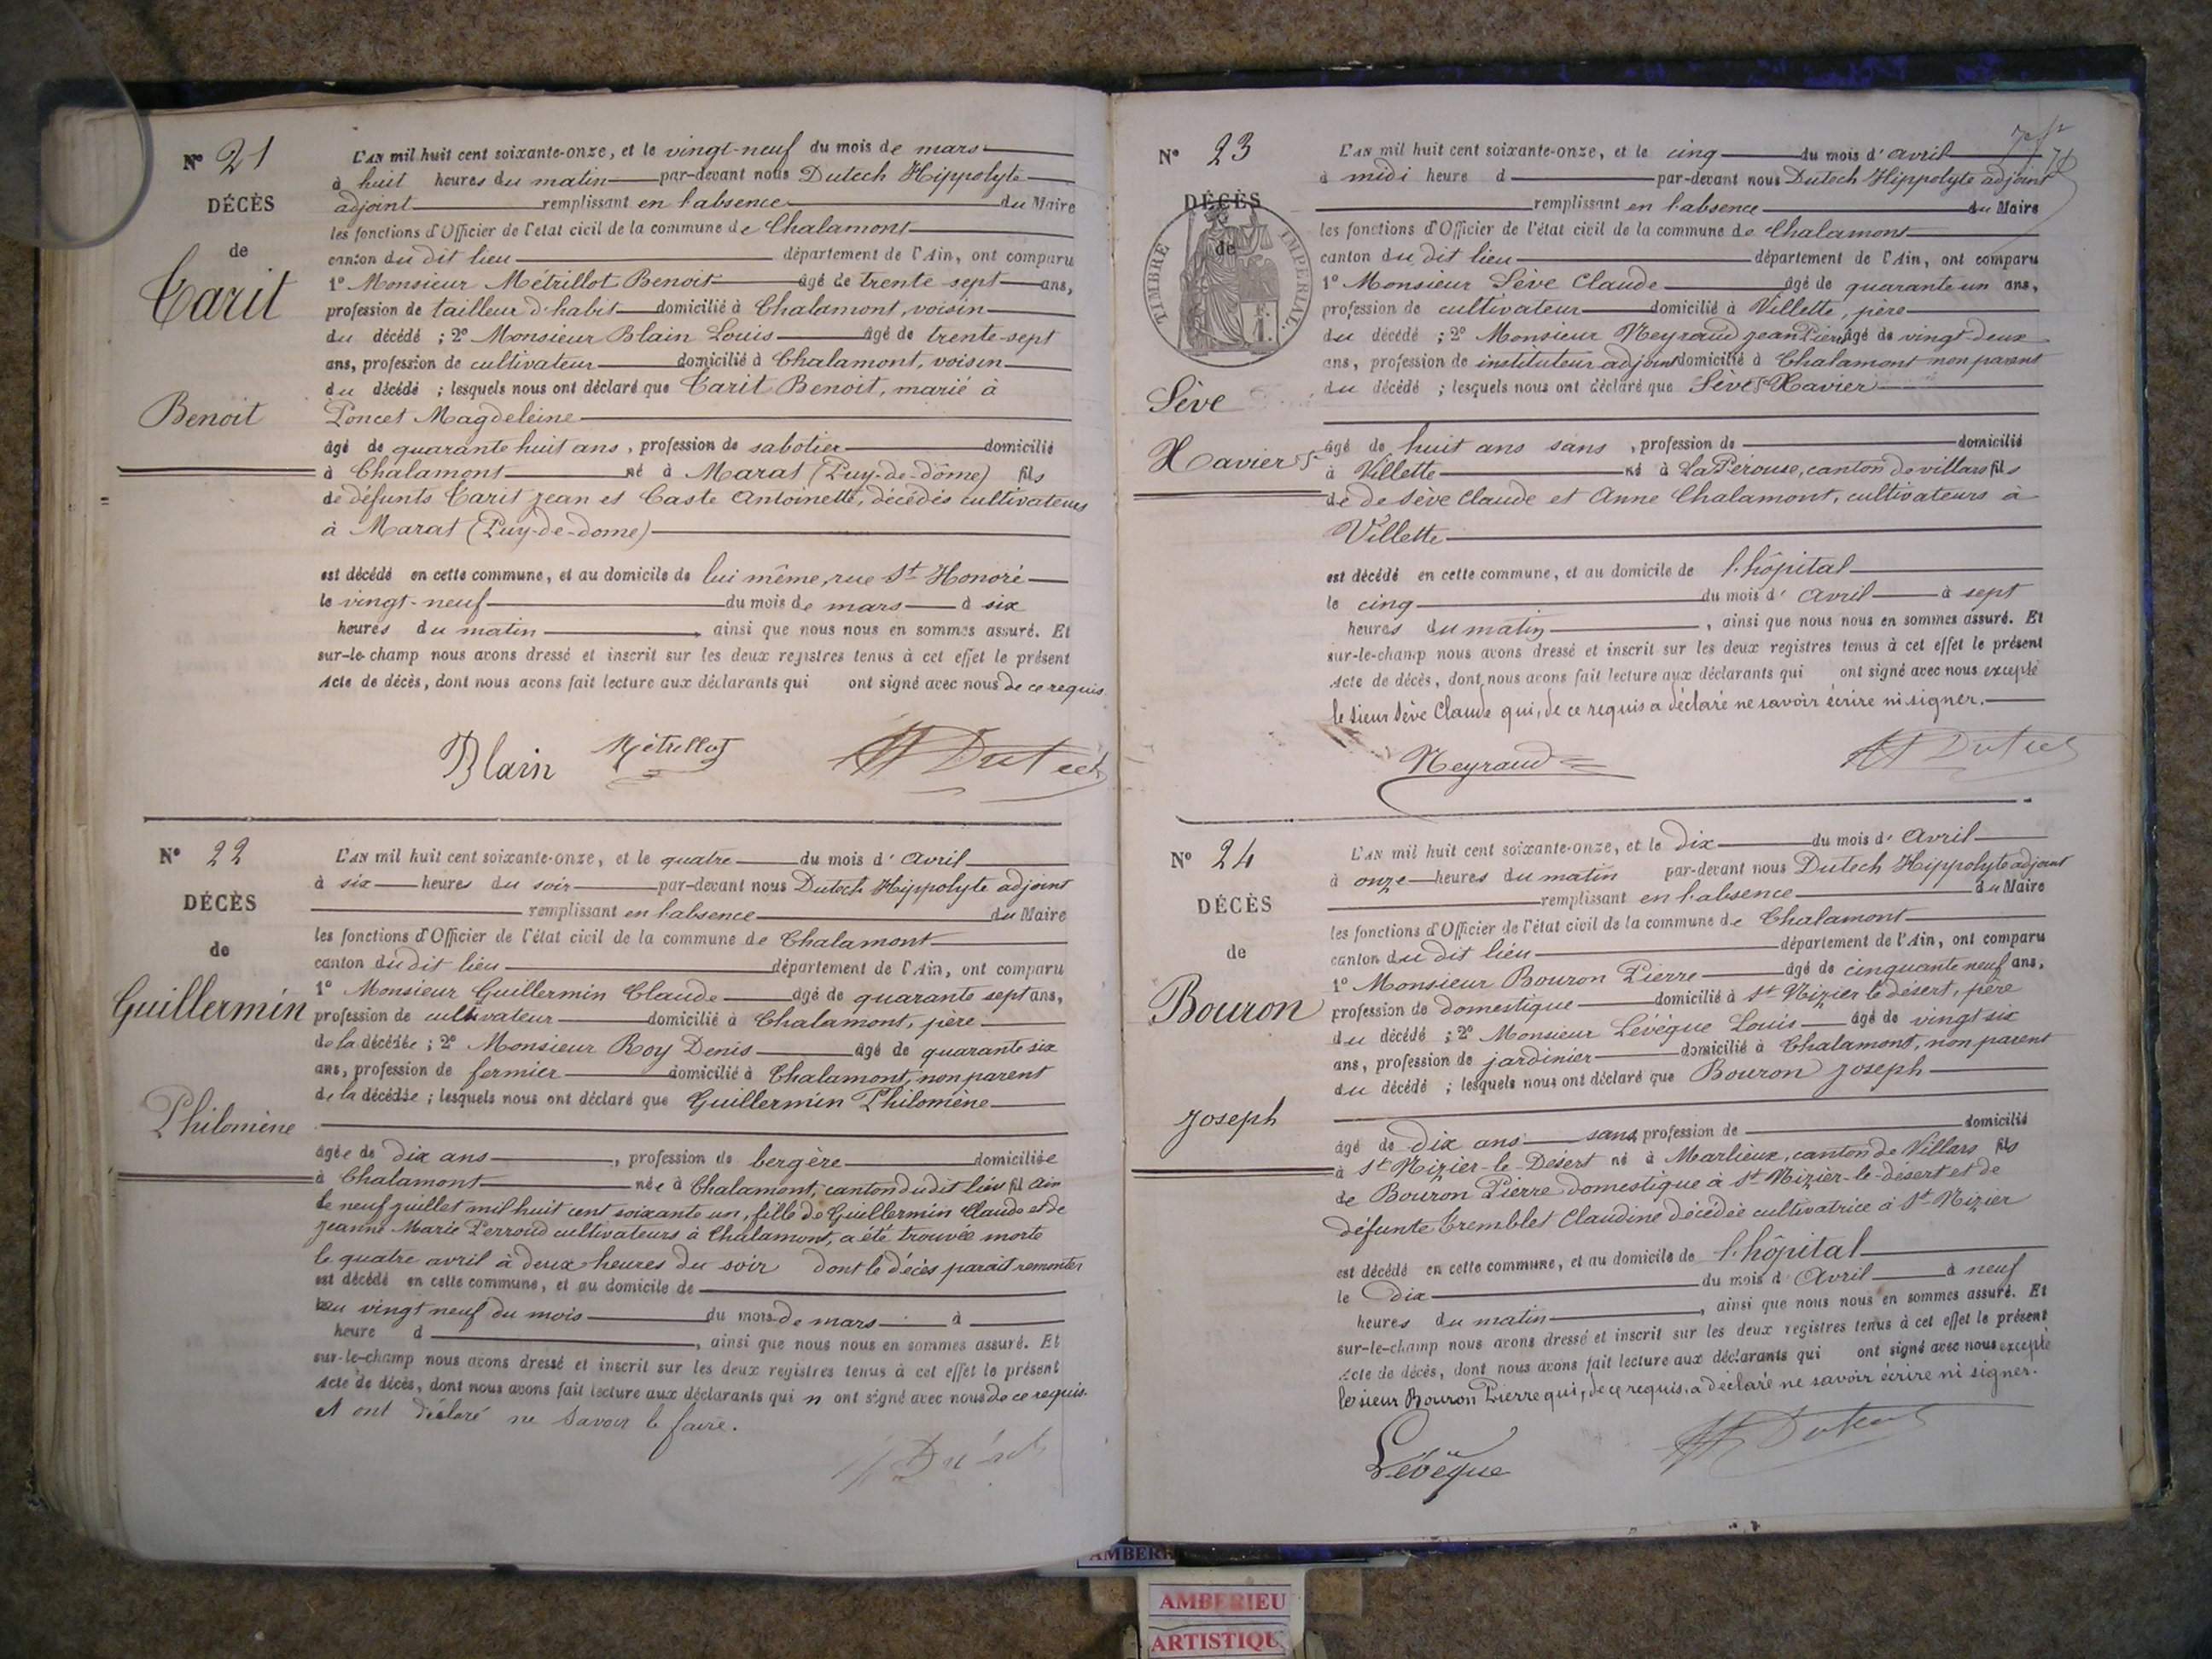 N° 21
DÉCÈS
de
Carit
Benoit
L'AN mil huit cent soixante-onze, et le vingt-neuf du mois de mars
à huit heures du matin par-devant nous Dutech Hippolyte
adjoint remplissant en l'absence du Maire
les fonctions d'Officier de l'état civil de la commune de Chalamont
canton du dit lieu département de l'Ain, ont comparu
1° Monsieur Métrillot Benoit âgé de trente sept ans,
profession de tailleur d'habit domicilié à Chalamont, voisin
du décédé ; 2° Monsieur Blain Louis âgé de trente-sept
ans, profession de cultivateur domicilié à Chalamont, voisin
du décédé ; lesquels nous ont déclaré que Carit Benoit, marié à
Poncet Magdeleine
âgé de quarante huit ans, profession de sabotier domicilié
à Chalamont né à Marat (Puy-de-dôme) fils
de défunts Carit jean et Caste Antoinette, décédés cultivateurs
à Marat (Puy-de-dome)
est décédé en cette commune, et au domicile de lui même, rue St Honoré
le vingt-neuf du mois de mars à six
heures du matin, ainsi que nous nous en sommes assuré. Et
sur-le-champ nous avons dressé et inscrit sur les deux registres tenus à cet effet le présent
Acte de décès, dont nous avons fait lecture aux déclarants qui ont signé avec nous de ce requis
Blain Métrillot H Dutech
N° 22
DÉCÈS
de
Guillermin
Philomène
L'AN mil huit cent soixante-onze, et le quatre du mois d' Avril
à six heures du soir par-devant nous Dutech Hippolyte adjoint
remplissant en l'absence du Maire
les fonctions d'Officier de l'état civil de la commune de Chalamont
canton du dit lieu département de l'Ain, ont comparu
1° Monsieur Guillermin Claude âgé de quarante sept ans,
profession de cultivateur domicilié à Chalamont, père
de la décédée ; 2° Monsieur Roy Denis âgé de quarante six
ans, profession de fermier domicilié à Chalamont, non parent
de la décédée ; lesquels nous ont déclaré que Guillermin Philomène
âgée de dix ans, profession de bergère domiciliée
à Chalamont née à Chalamont, canton du dit lieu fil Ain
le neuf juillet mil huit cent soixante un, fille de Guillermin Claude et de
jeanne Marie Perroud cultivateurs à Chalamont, a été trouvée morte
le quatre avril à deux heures du soir dont le décès parait remonter
est décédé en cette commune, et au domicile de
au vingt neuf du mois du mois de mars à
heure d, ainsi que nous nous en sommes assuré. Et
sur-le-champ nous avons dressé et inscrit sur les deux registres tenus à cet effet le présent
Acte de décès, dont nous avons fait lecture aux déclarants qui n ont signé avec nous de ce requis
et ont déclaré ne savoir le faire.
H Dutech
N° 23
DÉCÈS
de
TIMBRE IMPERIAL.
Sève
Xavier
L'AN mil huit cent soixante-onze, et le cinq du mois d' avril
à midi heure d par-devant nous Dutech Hippolyte adjoint
remplissant en l'absence du Maire
les fonctions d'Officier de l'état civil de la commune de Chalamont
canton du dit lieu département de l'Ain, ont comparu
1° Monsieur Sève Claude âgé de quarante un ans,
profession de cultivateur domicilié à Villette, père
du décédé ; 2° Monsieur Neyraud jean Pierre âgé de vingt-deux
ans, profession de instituteur adjoint domicilié à Chalamont non parent
du décédé ; lesquels nous ont déclaré que Sève Xavier
âgé de huit ans sans, profession de domicilié
à Villette né à La Pérouse, canton de villars fils
de de Sève Claude et Anne Chalamont, cultivateurs à
Villette
est décédé en cette commune, et au domicile de l'hôpital
le cinq du mois d' Avril à sept
heures du matin, ainsi que nous nous en sommes assuré. Et
sur-le-champ nous avons dressé et inscrit sur les deux registres tenus à cet effet le présent
Acte de décès, dont nous avons fait lecture aux déclarants qui ont signé avec nous excepté
le sieur Sève Claude qui, de ce requis a déclaré ne savoir écrire ni signer.
Neyraud H Dutech
N° 24
DÉCÈS
de
Bouron
Joseph
L'AN mil huit cent soixante-onze, et le dix du mois d' Avril
à onze heures du matin par-devant nous Dutech Hippolyte adjoint
remplissant en l'absence du Maire
les fonctions d'Officier de l'état civil de la commune de Chalamont
canton du dit lieu département de l'Ain, ont comparu
1° Monsieur Bouron Pierre âgé de cinquante neuf ans,
profession de domestique domicilié à St Nizier le désert, père
du décédé ; 2° Monsieur Lévêque Louis âgé de vingt six
ans, profession de jardinier domicilié à Chalamont, non parent
du décédé ; lesquels nous ont déclaré que Bouron Joseph
âgé de dix ans sans profession de domicilié
à St Nizier-le-Désert né à Marlieux, canton de Villars fils
de Bouron Pierre domestique à St Nizier-le-désert et de
défunte Tremblet Claudine décédée cultivatrice à St Nizier
est décédé en cette commune, et au domicile de l'hôpital
le Dix du mois d' Avril à neuf
heures du matin, ainsi que nous nous en sommes assuré. Et
sur-le-champ nous avons dressé et inscrit sur les deux registres tenus à cet effet le présent
Acte de décès, dont nous avons fait lecture aux déclarants qui ont signé avec nous excepté
le sieur Bouron Pierre qui, de ce requis, a déclaré ne savoir écrire ni signer.
Lévêque H Dutech
AMBERIEU
ARTISTIQU